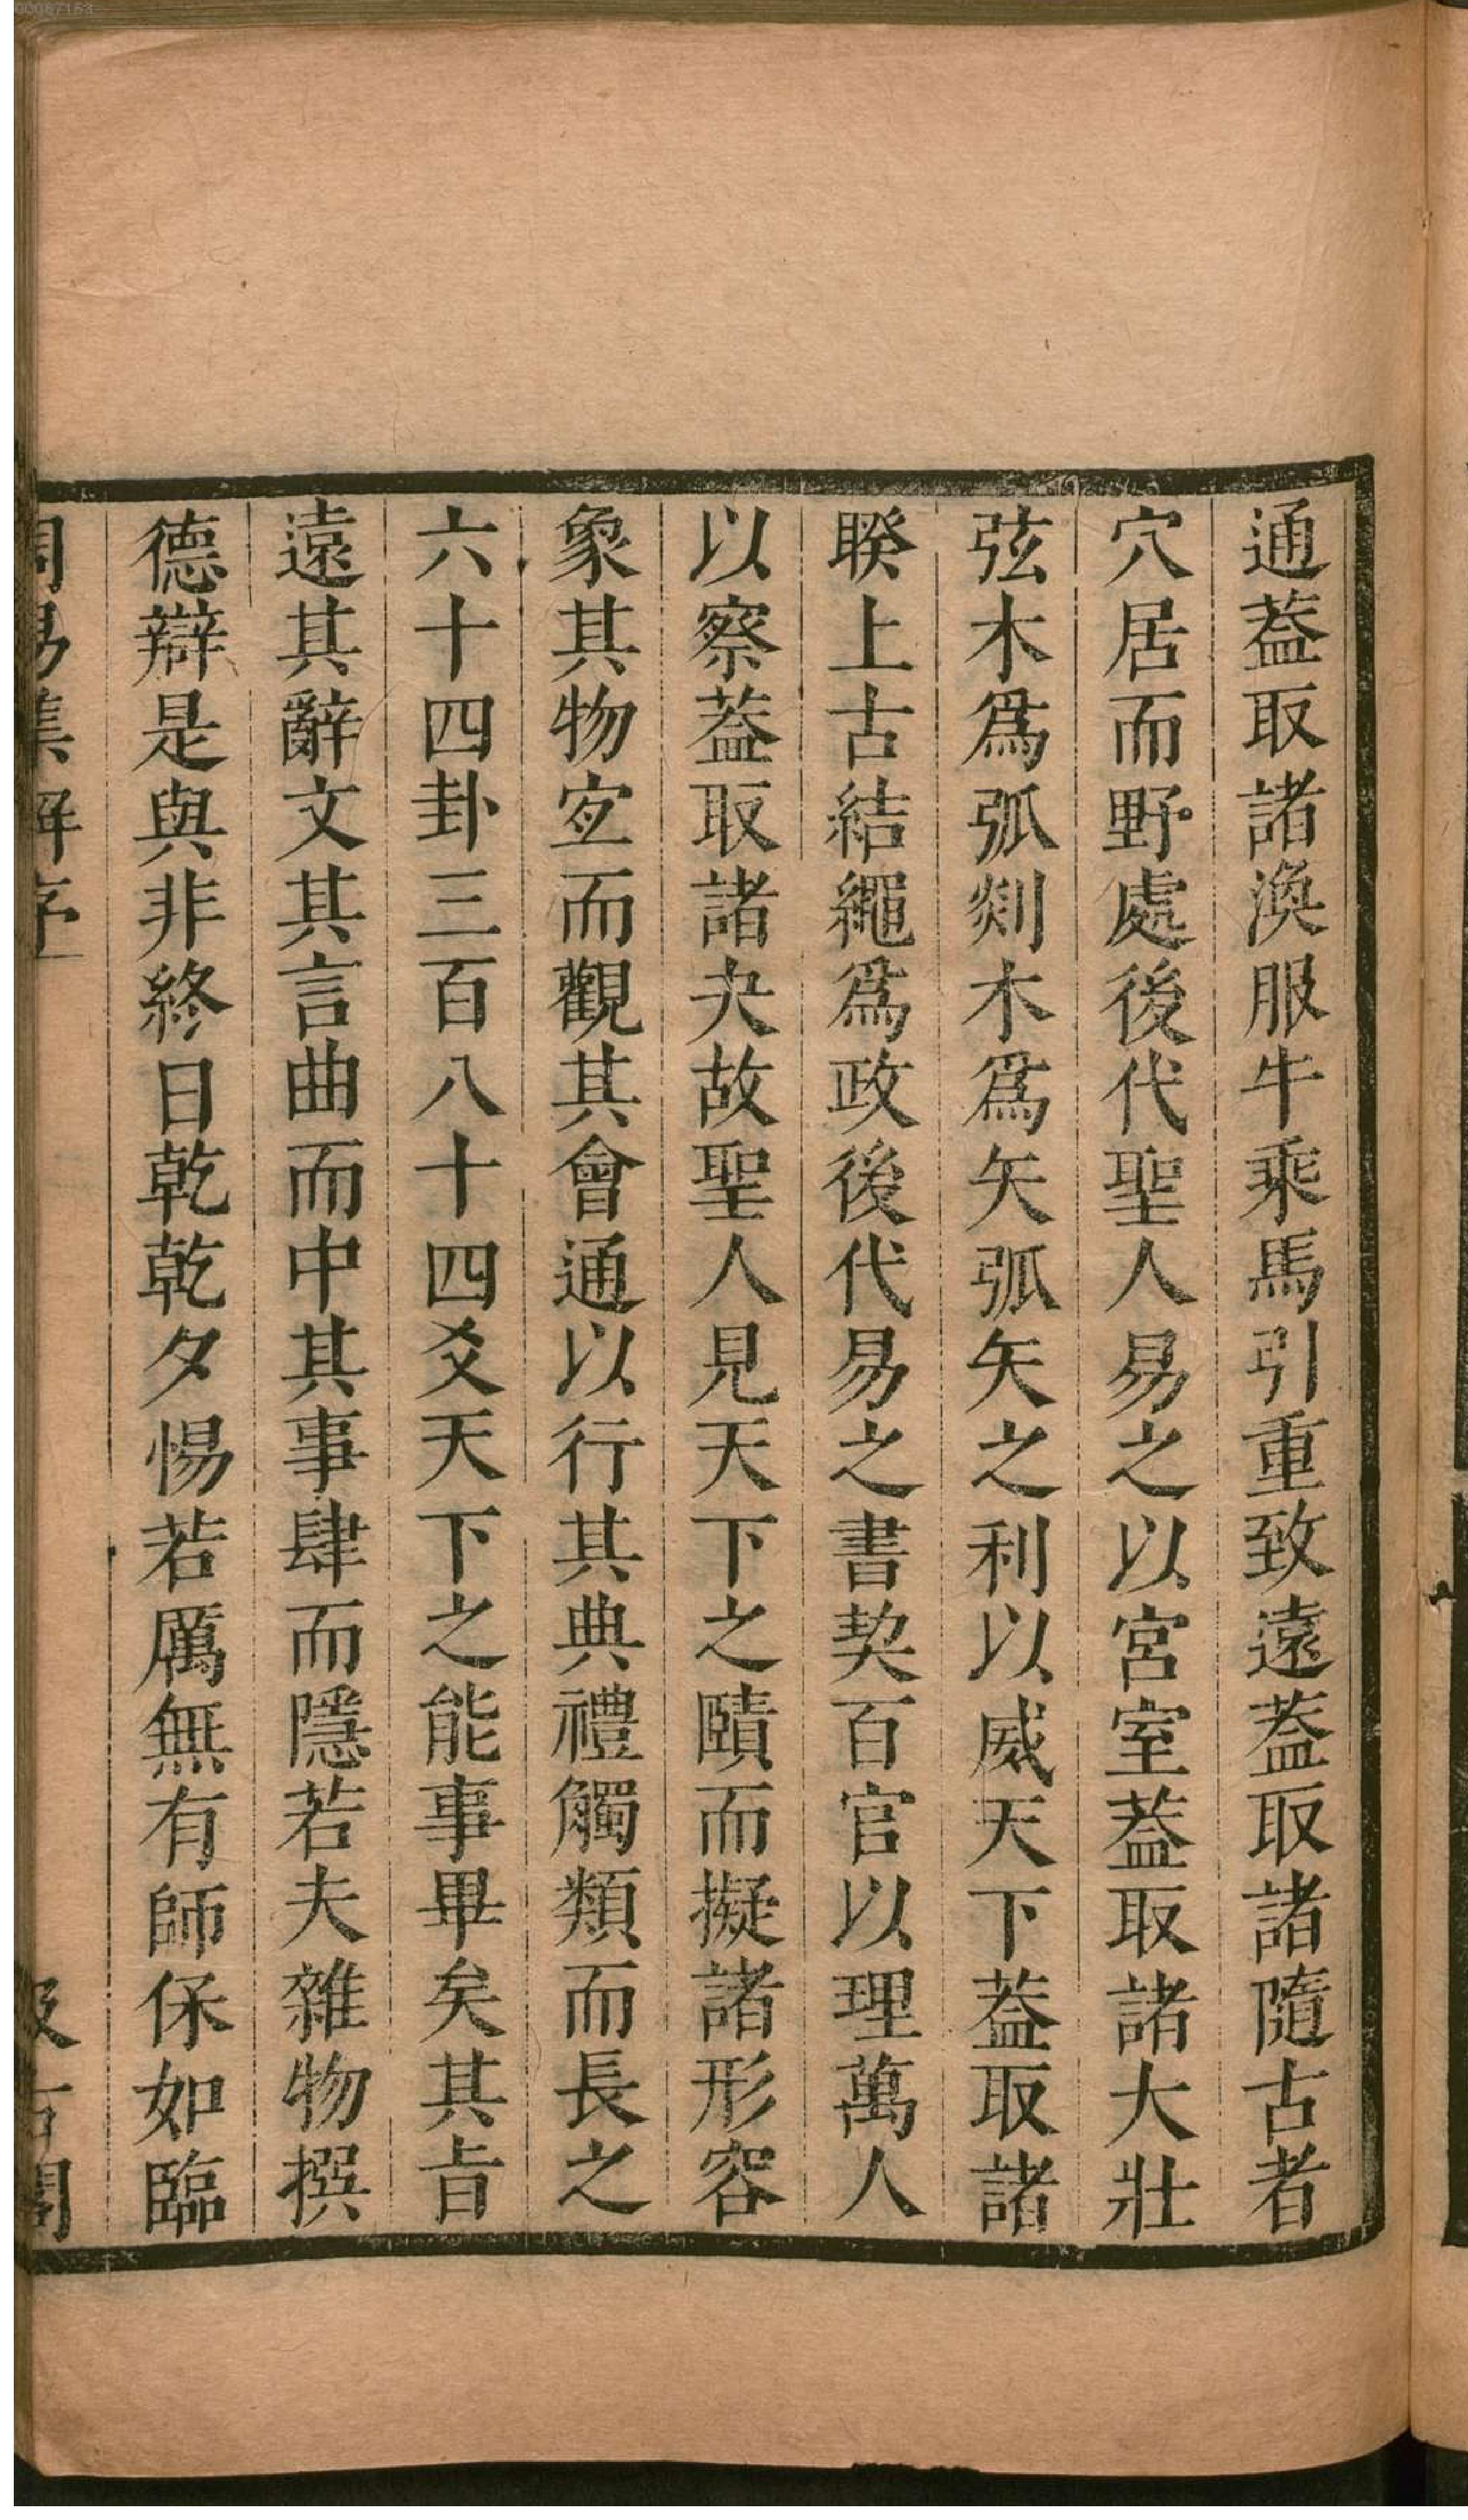 通葢取諸渙服牛乘馬引重致遠葢取諸隨古者
穴居而野處後代聖人易之以宮室葢取諸大壯
弦木爲弧剡木爲矢弧矢之利以威天下葢取諸
睽上古結繩爲政後代易之書契百官以理萬人
以察葢取諸夬故聖人見天下之賾而擬諸形容
象其物宐而觀其會通以行其典禮觸類而長之
六十四卦三百八十四爻天下之能事畢矣其旨
遠其辭文其言曲而中其事肆而隱若夫雜物撰
德辯是與非終日乾乾夕惕若厲無有師保如臨
周易集解序
汲古閣
00087153